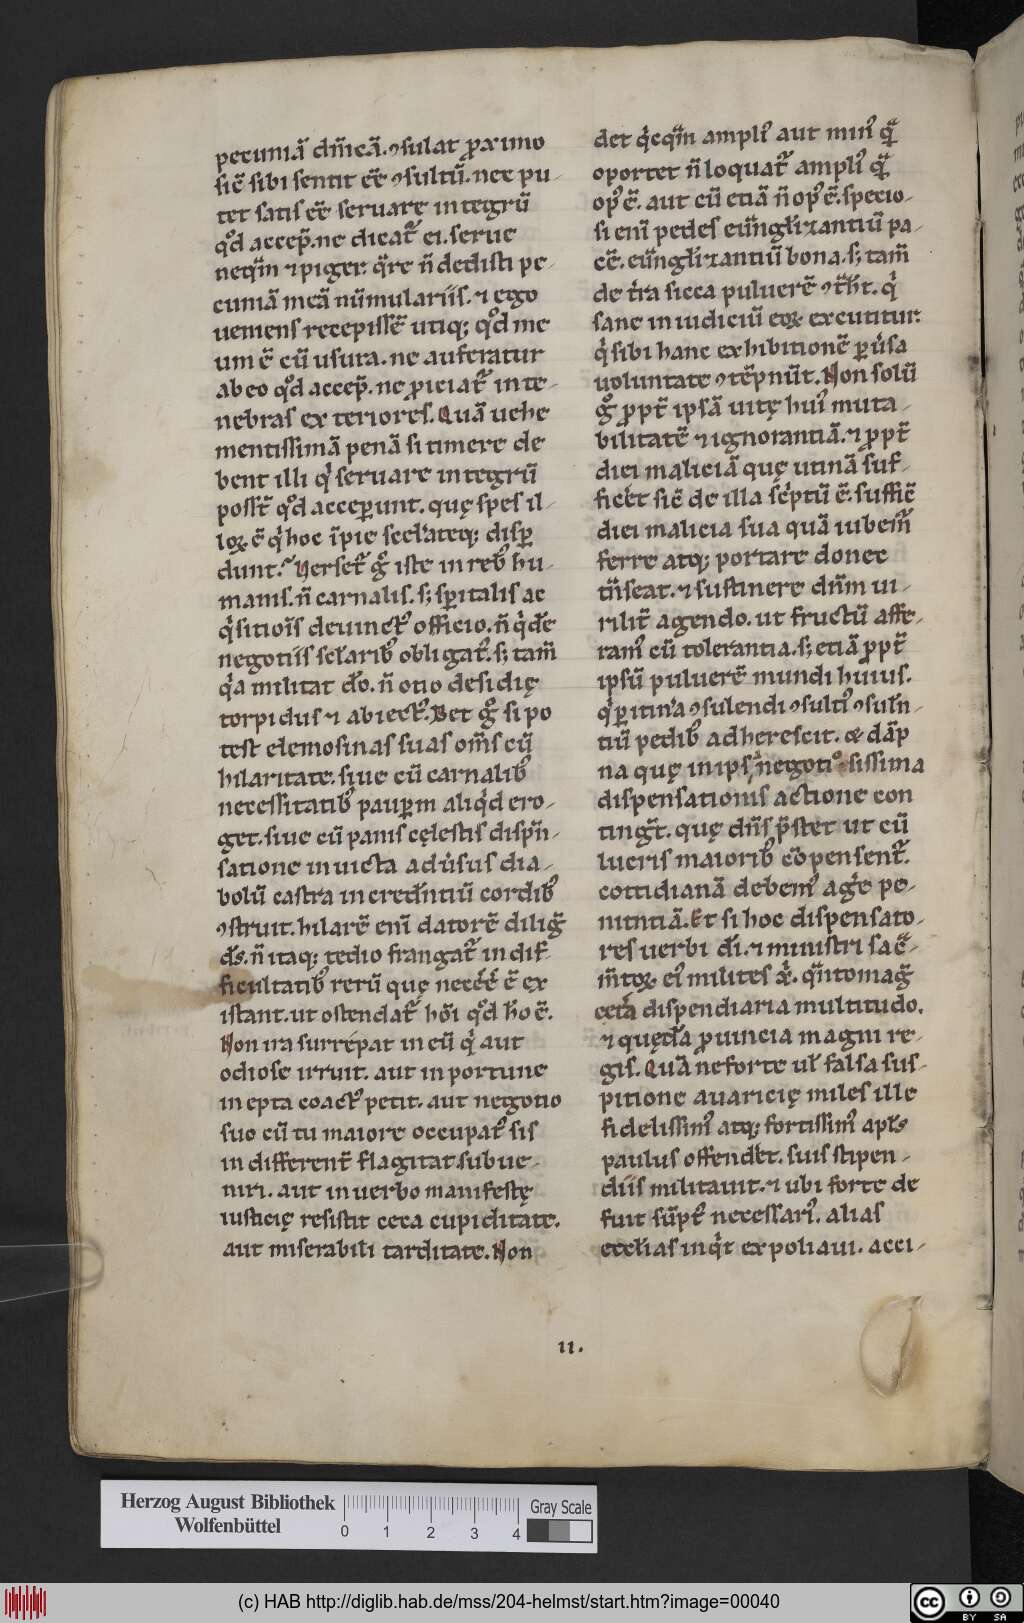 pecuniā dñicā. ꝯsulat ꝓximo
sic̄ sibi sentit eē ꝯsultū. nec pu-
tet satis eē seruare integrū
qd̕ accep̄. ne dicat᷑ ei. serue
neqᷓm ⁊ piger. qᷓre ñ dedisti pe-
cuniā meā nūmulariis. ⁊ ego
ueniens recepissē utiqꝫ qd̕ me
um ē cū usura. ne auferatur
ab eo qd̕ accep̄. ne ꝓiciat᷑ in te-
nebras exteriores. Quā uehe
mentissimā penā si timere de
bent illi qͥ seruare integrū
posst̄ qd̕ acceꝑunt. quę spes il-
loꝝ ē qͥ hoc īpie scelˡateqꝫ disꝑ
dunt. Verset᷑ gͦ iste in rebꝰ hu-
manis. ñ carnalis. sꝫ sꝑitalis ac
qͥsitiōis deuinctꝰ officio. ñ qͥdē
negotiis sclaribꝰ obligatꝰ. sꝫ tam̄
qͥa militat do. ñ otio desidię
torpidus ⁊ abiectꝰ. Det gͦ si po
test elemosinas suas om̄s cū
hilaritate. siue cū carnalibꝰ
necessitatibꝰ pauꝑum aliqͥd ero-
get. siue cū panis cęlestis dispn̄-
satione inuicta aduˢsus dia-
bolū castra in credn̄tiū cordibꝰ
ꝯstruit. hilarē enī datorē diligᷓ
ds̄. ñ itaqꝫ tedio frangat᷑ in dif
ficultatibꝰ rerū quę necēē ē ex
istant. ut ostendat᷑ hōi qd̕ ho ē.
Non ira surrepat in eū qͥ aut
odiose irruit. aut inportune
inepta coactꝰ petit. aut negotio
suo cū tu maiore occupatꝰ sis
indifferent̄ flagitat subue-
niri. aut in uerbo manifestę
iusticię resistit ceca cupiditate.
aut miserabili tarditate. Non
det qͥcqᷓm ampliꝰ aut minꝰ qᷓ
oportet. ñ loquat᷑ ampliꝰ qᷓ
opꝰ ē. aut cū etiā ñ opꝰ ē. specio-
si enī pedes euᷓngliꝫantiū pa-
cē. euᷓngliꝫantiū bona. sꝫ tam̄
de tˢra sicca puluerē ꝯtᷓht. qͥ
sane in iudiciū eoꝝ excutitur.
qͥ sibi hanc exhibitionē ꝑuˢsa
uoluntate ꝯtēpnūt. Non solū
gͦ ꝓpt̄ ipsā uitę huiꝰ muta-
bilitatē ⁊ ignorantiā. ⁊ ꝓpt̄
diei maliciā quę utinā suf-
ficēt sic̄ de illa scͥptū ē. sufficē
diei malicia sua quā iubem᷑
ferre atqꝫ portare donec
tn̄seat. ⁊ sustinere dn̄m ui-
rilit̄ agendo. ut fructū affe-
ramꝰ cū tolerantia. sꝫ etiā ꝓpt̄
ipsū puluerē mundi huius.
qͥ ꝑ itinˢa ꝯsulendi ꝯsultiꝰ ꝯsuln̄
tiū pedibꝰ adherescit. & dāp
na quę in ipsͣ negotiosissima
dispensationis actione con
tingt̄. quę dn̄s p̄stet ut cū
lucris maioribꝰ cōpensent᷑.
cottidianā debemꝰ agˢe pe-
nitntiā. Et si hoc dispensato-
res uerbi di. ⁊ ministri sacᷓ-
m̄toꝝ eiꝰ milites x̄. qᷓnto magᷓ
cetˢa dispendiaria multitudo.
⁊ quędā ꝓuincia magni re-
gis. Quā ne forte ul falsa sus-
pitione auaricię miles ille
fidelissimꝰ atqꝫ fortissimꝰ apls
paulus offendˢet. suis stipen-
diis militauit. ⁊ ubi forte de
fuit sūptꝰ necessariꝰ. alias
ecclias inqͥt expoliaui. acci-
11.
Herzog August Bibliothek
Wolfenbüttel
0 1 2 3 4
Gray Scale
(c) HAB http://diglib.hab.de/mss/204-helmst/start.htm?image=00040
cc BY SA